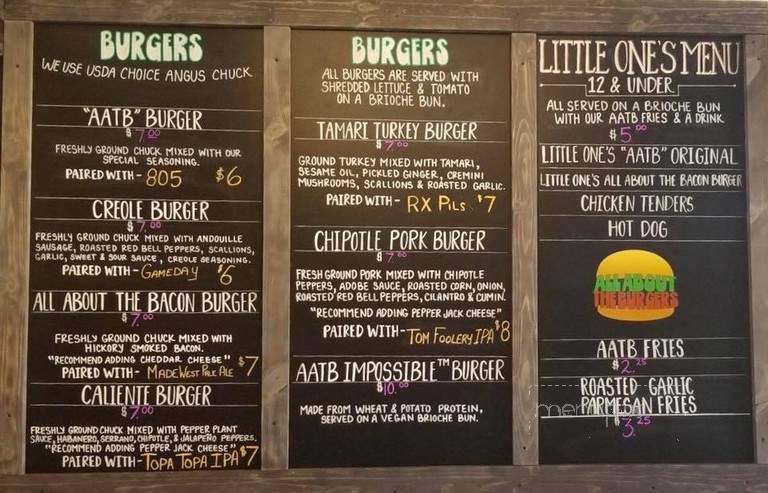 BURGERS
WE USE USDA CHOICE ANGUS CHUCK
"AATB" BURGER
$7.00
FRESHLY GROUND CHUCK MIXED WITH OUR
SPECIAL SEASONING.
PAIRED WITH - 805 $6
CREOLE BURGER
$7.00
FRESHLY GROUND CHUCK MIXED WITH ANDOUILLE
SAUSAGE, ROASTED RED BELL PEPPERS, SCALLIONS,
GARLIC, SWEET & SOUR SAUCE, CREOLE SEASONING.
PAIRED WITH - GAMEDAY $6
ALL ABOUT THE BACON BURGER
$7.00
FRESHLY GROUND CHUCK MIXED WITH
HICKORY SMOKED BACON.
"RECOMMEND ADDING CHEDDAR CHEESE"
PAIRED WITH - MADEWEST PALE ALE $7
CALIENTE BURGER
$7.00
FRESHLY GROUND CHUCK MIXED WITH PEPPER PLANT
SAUCE, HABANERO, SERRANO, CHIPOTLE, & JALAPEÑO PEPPERS.
"RECOMMEND ADDING PEPPER JACK CHEESE"
PAIRED WITH - TOPA TOPA IPA $7
BURGERS
ALL BURGERS ARE SERVED WITH
SHREDDED LETTUCE & TOMATO
ON A BRIOCHE BUN.
TAMARI TURKEY BURGER
$7.00
GROUND TURKEY MIXED WITH TAMARI,
SESAME OIL, PICKLED GINGER, CREMINI
MUSHROOMS, SCALLIONS & ROASTED GARLIC.
PAIRED WITH - RX PILS $7
CHIPOTLE PORK BURGER
$7.00
FRESH GROUND PORK MIXED WITH CHIPOTLE
PEPPERS, ADOBE SAUCE, ROASTED CORN, ONION,
ROASTED RED BELL PEPPERS, CILANTRO & CUMIN.
"RECOMMEND ADDING PEPPER JACK CHEESE"
PAIRED WITH - TOM FOOLERY IPA $8
AATB IMPOSSIBLE™ BURGER
$10.00
MADE FROM WHEAT & POTATO PROTEIN,
SERVED ON A VEGAN BRIOCHE BUN.
LITTLE ONE'S MENU
12 & UNDER
ALL SERVED ON A BRIOCHE BUN
WITH OUR AATB FRIES & A DRINK
$5.00
LITTLE ONE'S "AATB" ORIGINAL
LITTLE ONE'S ALL ABOUT THE BACON BURGER
CHICKEN TENDERS
HOT DOG
ALL ABOUT
THE BURGERS
AATB FRIES
$2.25
ROASTED GARLIC
PARMESAN FRIES
$3.25